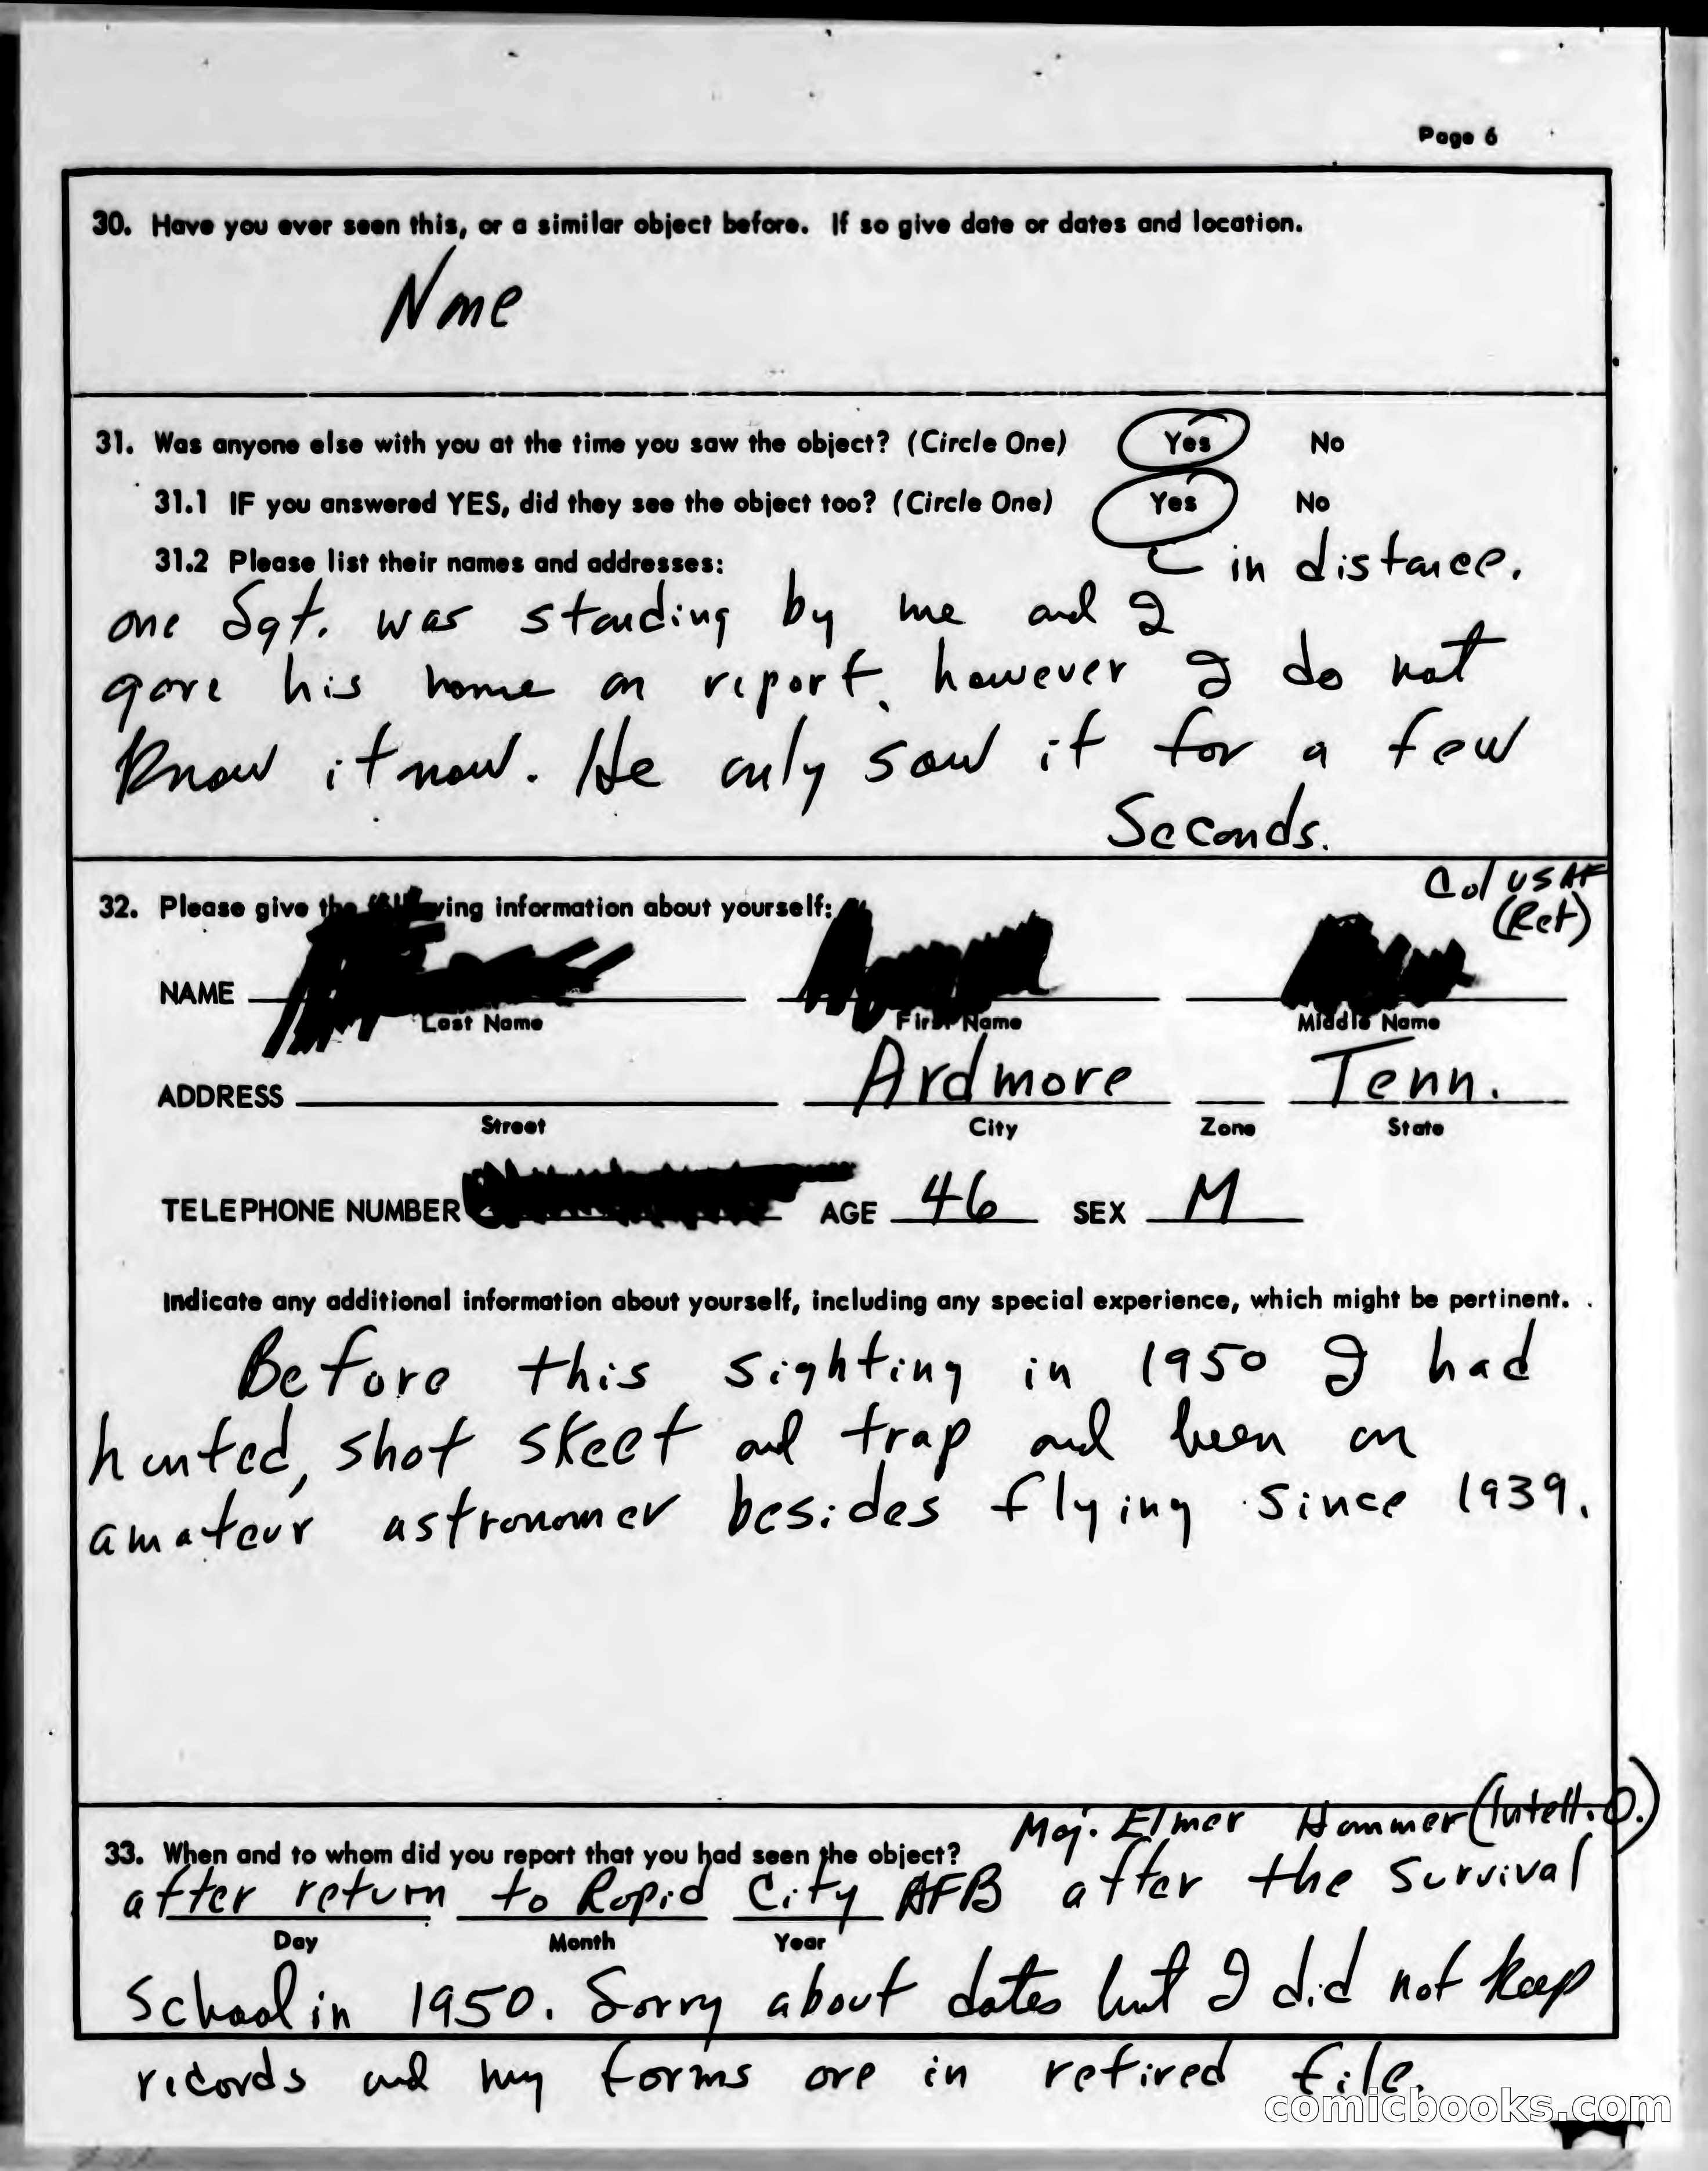 Page 6
30. Have you ever seen this, or a similar object before. If so give date or dates and location.
None
31. Was anyone else with you at the time you saw the object? (Circle One) Yes No
31.1 IF you answered YES, did they see the object too? (Circle One) Yes No
31.2 Please list their names and addresses: in distance.
one Sgt. was standing by me and I
gave his name on report, however I do not
know it now. He only saw it for a few
Seconds.
Col USAF
(Ret)
32. Please give the following information about yourself:
NAME
Last Name First Name Middle Name
ADDRESS Ardmore Tenn.
Street City Zone State
TELEPHONE NUMBER AGE 46 SEX M
Indicate any additional information about yourself, including any special experience, which might be pertinent.
Before this sighting in 1950 I had
hunted, shot skeet and trap and been an
amateur astronomer besides flying since 1939.
Maj. Elmer Hammer (Intell. O.)
33. When and to whom did you report that you had seen the object?
after return to Rapid City AFB after the survival
Day Month Year
School in 1950. Sorry about dates but I did not keep
records and my forms are in retired file.
comicbooks.com